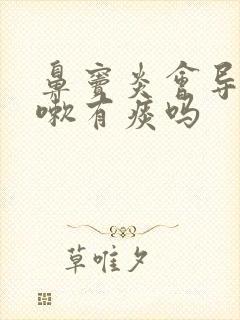 鼻窦炎会导
嗽有痰吗
草唯夕